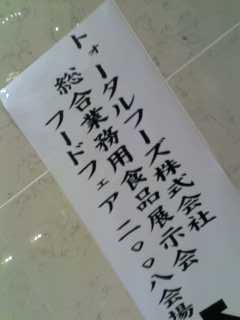 トォータルフーズ株式会社
総合業務用食品展示会
フードフェア二〇〇八会場